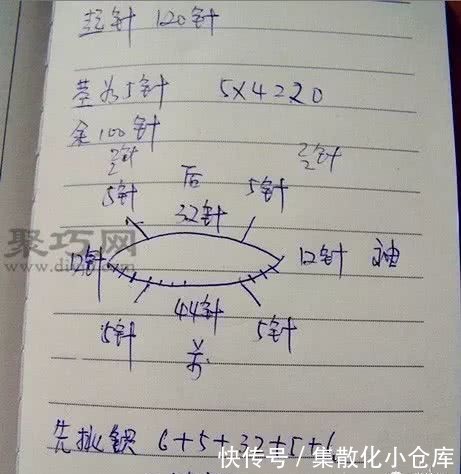 起针 120针
茎为5针 5×4=20
余100针
2针 2针
5针 后 5针
32针
12针 12针 袖
44针
5针 5针
前
先挑织 6+5+32+5+6
聚巧网
快传号/集散化小仓库